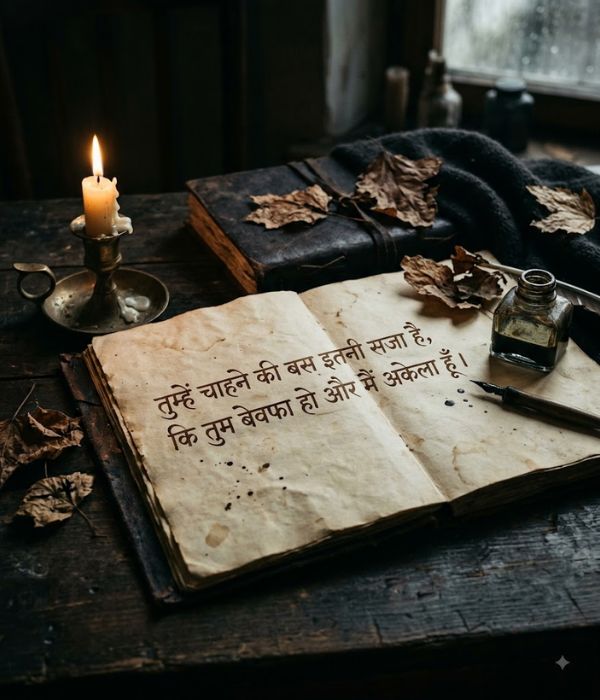 तुम्हें चाहने की बस इतनी सजा है,
कि तुम बेवफा हो और मैं अकेला हूँ।